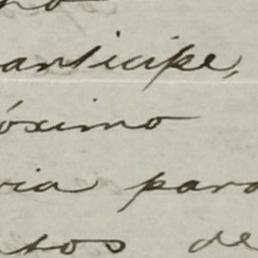 anticipe,
óximo
ria para
tos de